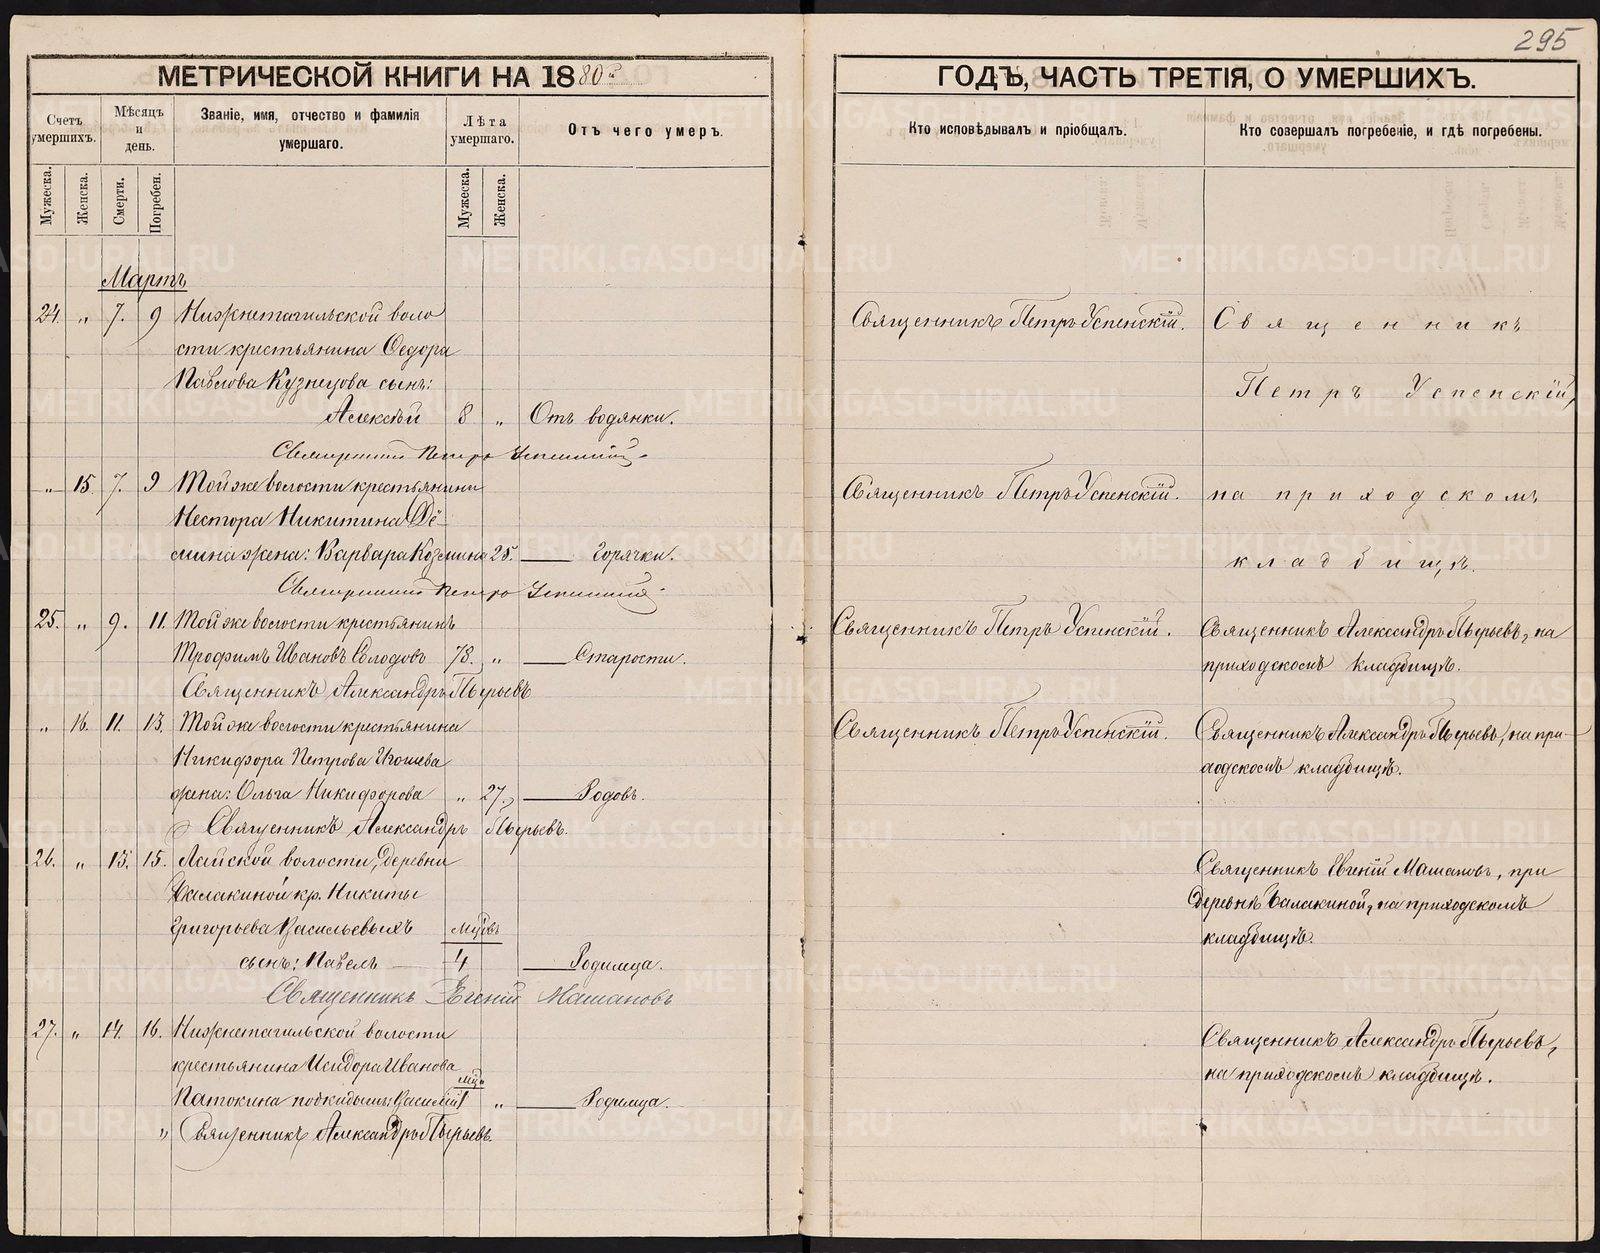 295
МЕТРИЧЕСКОЙ КНИГИ НА 1880й
ГОДЪ, ЧАСТЬ ТРЕТІЯ, О УМЕРШИХЪ.
Счетъ умершихъ.
Мѣсяцъ и день.
Званіе, имя, отчество и фамилія умершаго.
Лѣта умершаго.
Отъ чего умеръ.
Кто исповѣдывалъ и пріобщалъ.
Кто совершалъ погребеніе, и гдѣ погребены.
Мужеска.
Женска.
Смерти.
Погребен.
Мужеска.
Женска.
Мартъ
24. „ 7. 9 Нижнетагильской воло
сти крестьянина Ѳедора
Павлова Кузнецова сынъ:
Алексѣй 8 „ Отъ водянки.
Священникъ Петръ Успенскій.
Священникъ Петръ Успенскій.
Священникъ
Петръ Успенскій,
„ 15 7. 9 Той же волости крестьянина
Нестора Никитина Дё-
мина жена: Варвара Козмина 25. — горячки.
Священникъ Петръ Успенскій
Священникъ Петръ Успенскій.
на приходскомъ
кладбищѣ.
25. „ 9. 11. Той же волости крестьянинъ
Трофимъ Ивановъ Солодовъ 78. „ — Старости.
Священникъ Александръ Пырьевъ
Священникъ Петръ Успенскій.
Священникъ Александръ Пырьевъ, на
приходскомъ кладбищѣ.
„ 16. 11. 13. Той же волости крестьянина
Никифора Петрова
жена: Ольга Никифорова „ 27. — Родовъ.
Священникъ Александръ Пырьевъ.
Священникъ Петръ Успенскій.
Священникъ Александръ Пырьевъ, на при-
ходскомъ кладбищѣ.
26. „ 13. 15. Лайской волости, деревни
Балакиной кр. Никиты
Григорьева Васильевыхъ мцовъ
сынъ: Павелъ — 4 — Родимца.
Священникъ Евгеній Машановъ
Священникъ Евгеній Машановъ, при
деревнѣ Балакиной, на приходскомъ
кладбищѣ.
27. „ 14. 16. Нижнетагильской волости
крестьянина Исидора Иванова
мцъ
Патокина подкидышъ: Василій 1 „ — Родимца.
„ Священникъ Александръ Пырьевъ.
Священникъ Александръ Пырьевъ,
на приходскомъ кладбищѣ.
METRIKI.GASO-URAL.RU